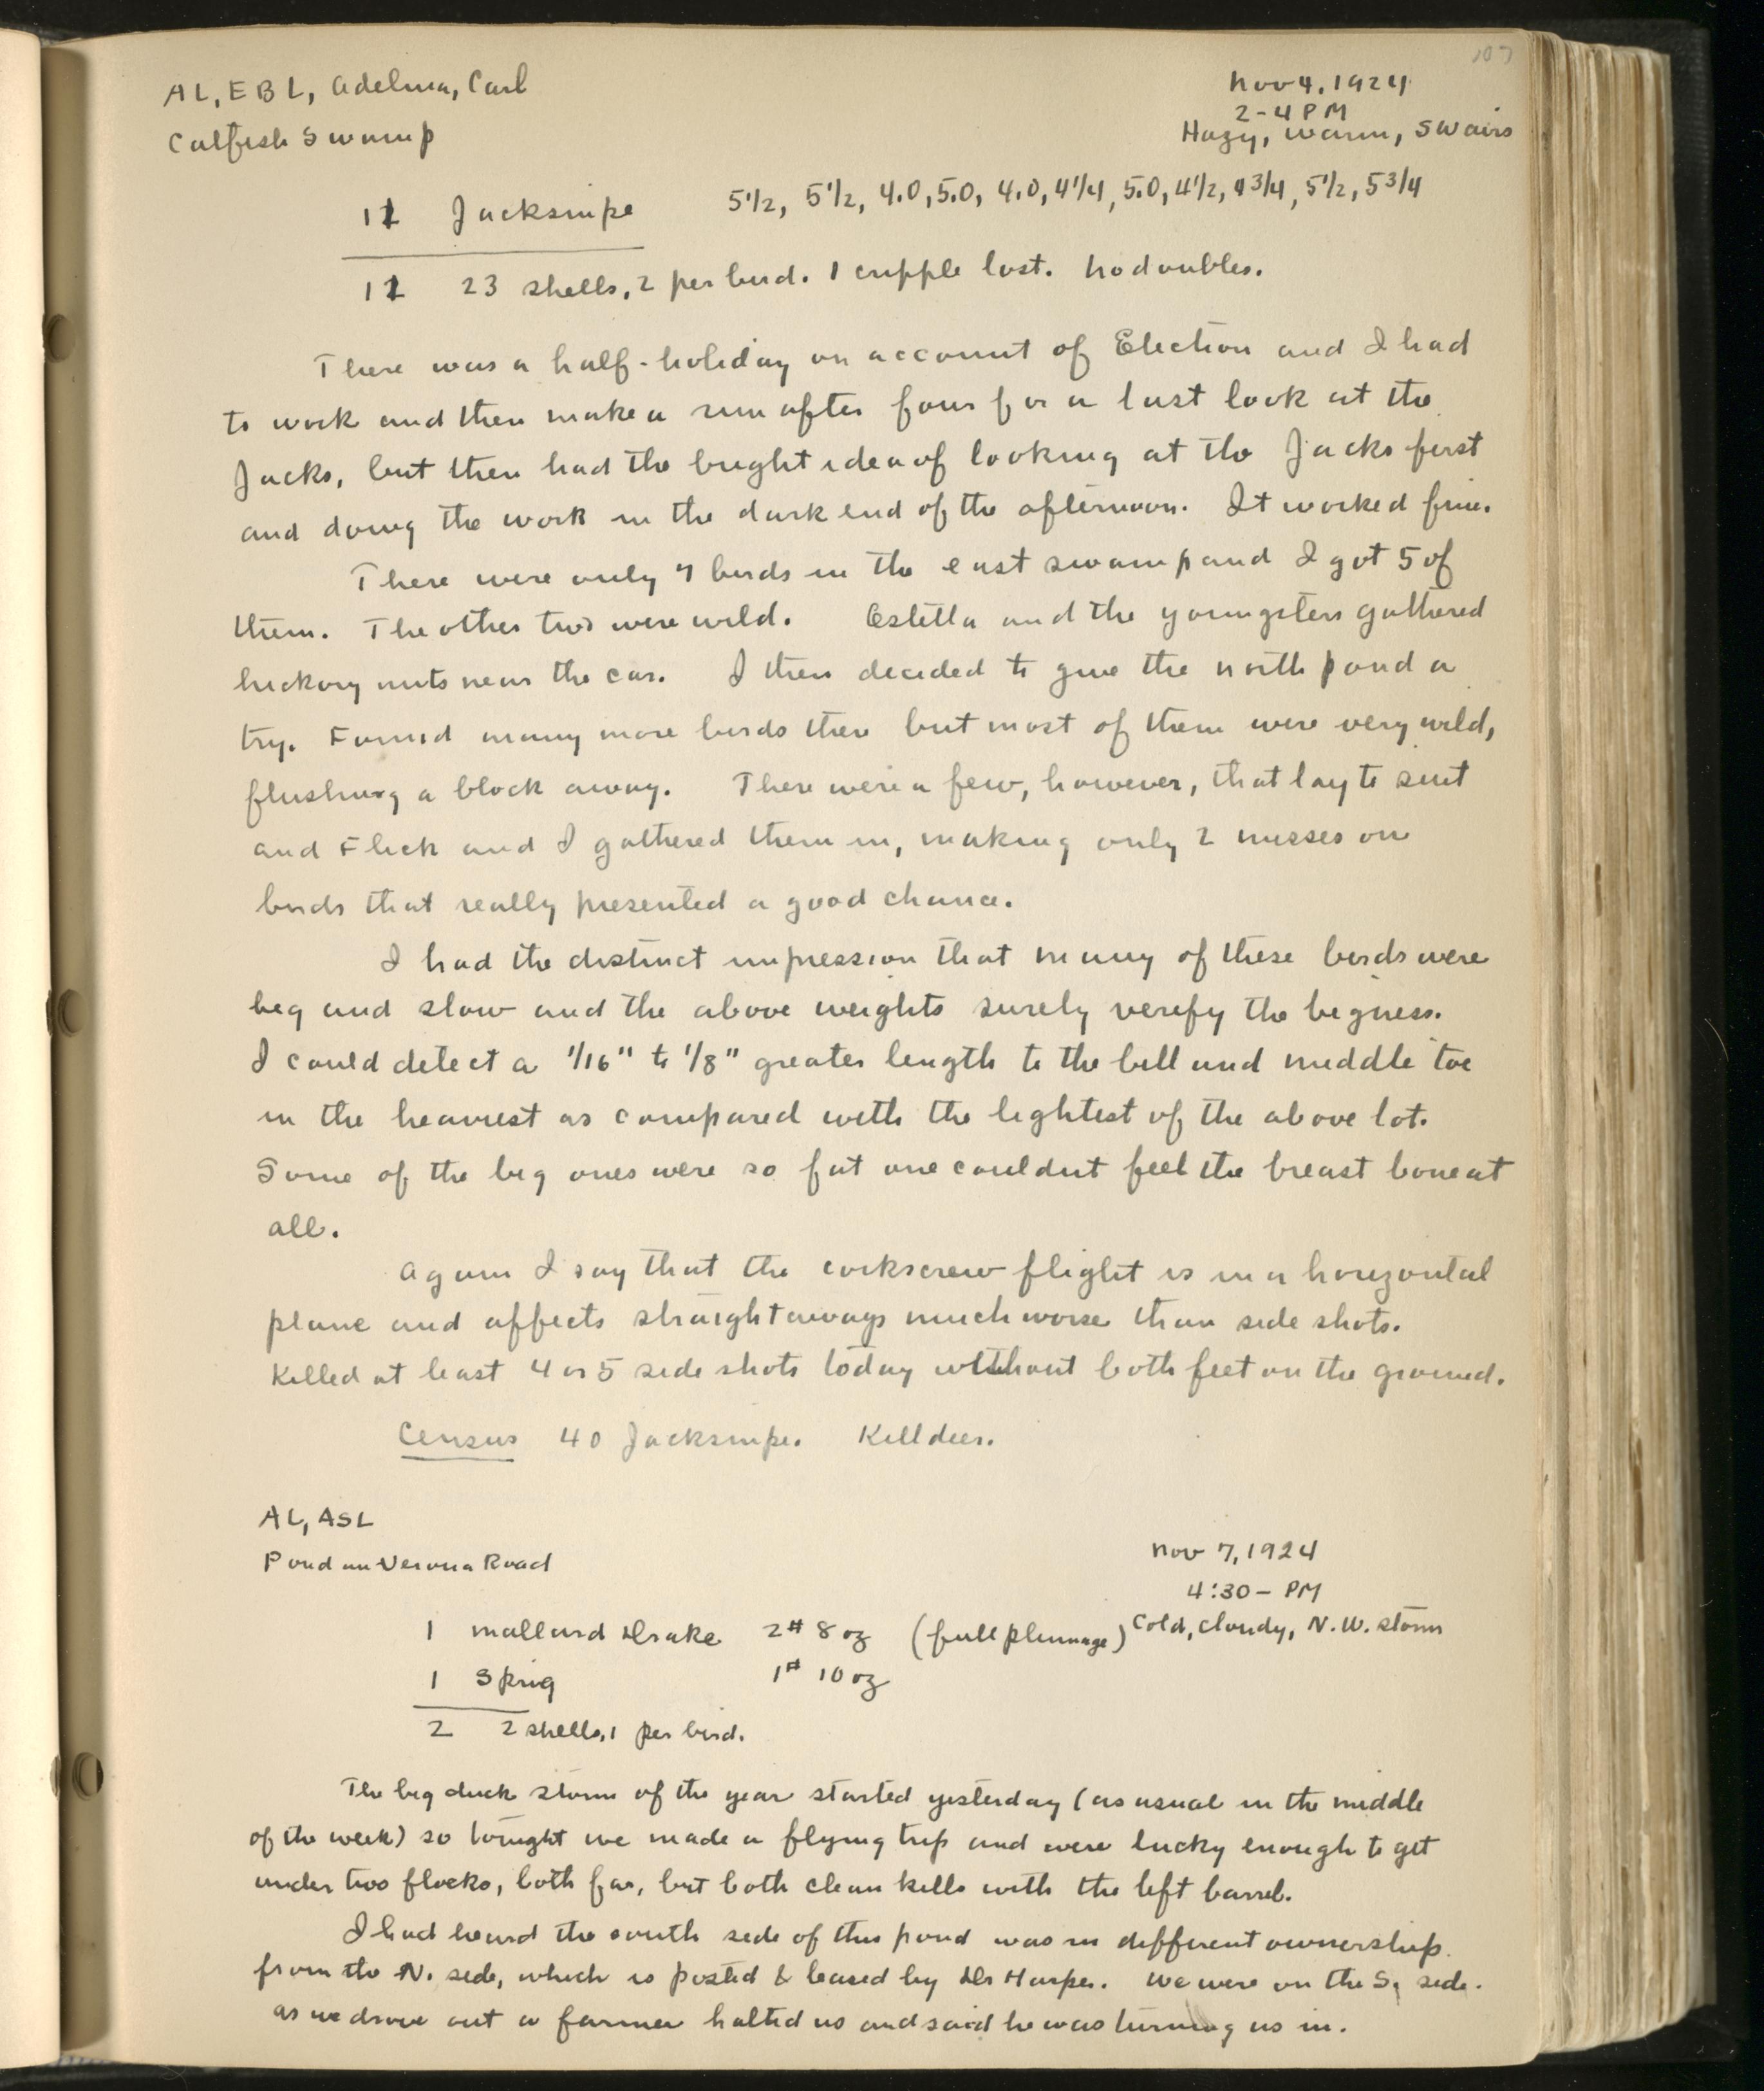 107
AL, EBL, Adelina, Carl
Nov 4, 1924
2-4 PM
Catfish Swamp
Hazy, warm, SW airs
11 Jacksnipe 5 1/2, 5 1/2, 4.0, 5.0, 4.0, 4 1/4, 5.0, 4 1/2, 4 3/4, 5 1/2, 5 3/4
11 23 shells, 2 per bird. 1 cripple lost. No doubles.
There was a half-holiday on account of Election and I had
to work and then make a run after four for a last look at the
Jacks, but then had the bright idea of looking at the Jacks first
and doing the work in the dark end of the afternoon. It worked fine.
There were only 7 birds in the east swamp and I got 5 of
them. The other two were wild. Estella and the youngsters gathered
hickory nuts near the car. I then decided to give the north pond a
try. Found many more birds there but most of them were very wild,
flushing a block away. There were a few, however, that lay to suit
and Flick and I gathered them in, making only 2 misses on
birds that really presented a good chance.
I had the distinct impression that many of these birds were
big and slow and the above weights surely verify the bigness.
I could detect a 1/16" to 1/8" greater length to the bill and middle toe
in the heaviest as compared with the lightest of the above lot.
Some of the big ones were so fat one couldnt feel the breast bone at
all.
Again I say that the corkscrew flight is in a horizontal
plane and affects straightaways much worse than side shots.
Killed at least 4 or 5 side shots today without both feet on the ground.
Census 40 Jacksnipe. Killdeer.
AL, ASL
Nov 7, 1924
Pond on Verona Road
4:30 - PM
1 Mallard Drake 2# 8 oz (full plumage) Cold, cloudy, N.W. storm
1 Sprig 1# 10 oz
2 2 shells, 1 per bird.
The big duck storm of the year started yesterday (as usual in the middle
of the week) so tonight we made a flying trip and were lucky enough to get
under two flocks, both far, but both clean kills with the left barrel.
I had heard the south side of this pond was in different ownership
from the N. side, which is posted & leased by Dr Harper. We were on the S. side.
As we drove out a farmer halted us and said he was turning us in.